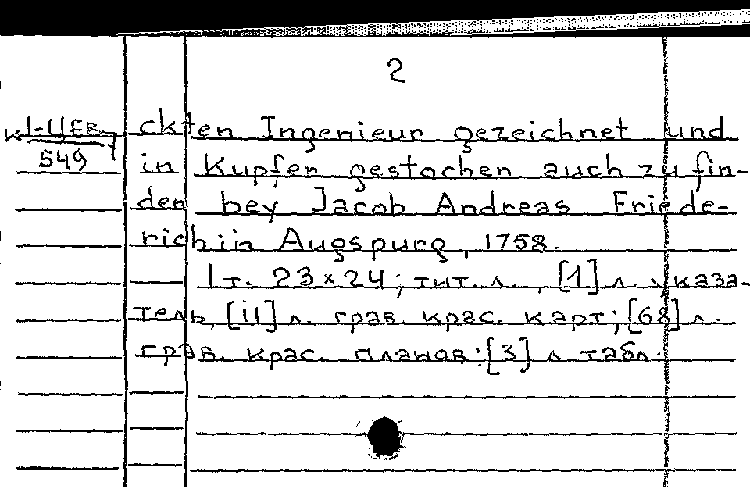 2
ckten Ingenieur gezeichnet und
549
in Kupfer gestochen auch zu fin-
den bey Jacob Andreas Friede-
rich in Augspurg, 1758.
1 т. 23×24; тит. л., [1] л. указа-
тель, [11] л. грав. крас. карт; [68] л.
грав. крас. планов; [3] л. табл.